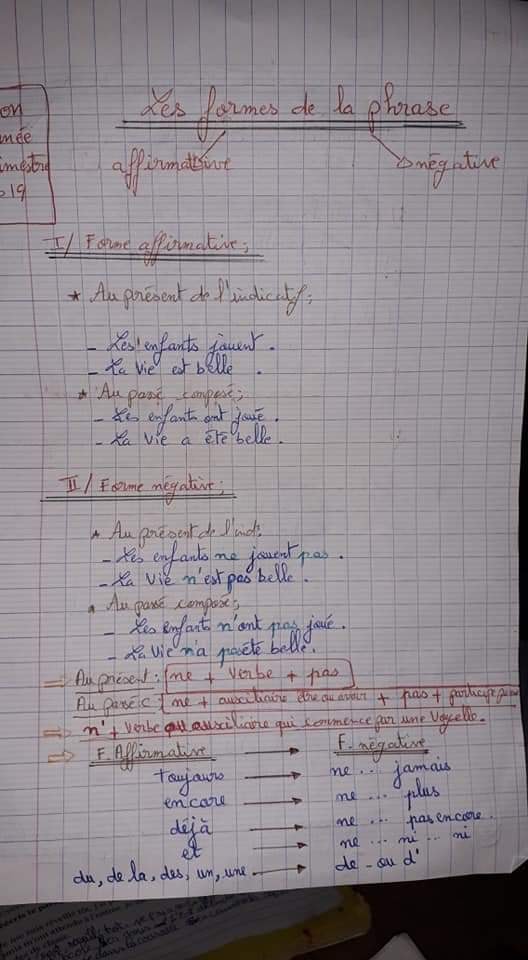 Les formes de la phrase
affirmative négative
on
née
imestre
19
I/ Forme affirmative;
* Au présent de l'indicatif;
- Les enfants jouent.
- La vie est belle.
* Au passé composé;
- Les enfants ont joué.
- La vie a été belle.
II/ Forme négative;
* Au présent de l'ind;
- Les enfants ne jouent pas.
- La vie n'est pas belle.
* Au passé composé;
- Les enfants n'ont pas joué.
- La vie n'a pas été belle.
⇒ Au présent: ne + verbe + pas
Au passé c: ne + auxiliaire être ou avoir + pas + participe passé
⇒ n' + verbe ou auxiliaire qui commence par une voyelle.
⇒ F. Affirmative → F. négative
toujours → ne ... jamais
encore → ne ... plus
déjà → ne ... pas encore.
et → ne ... ni ... ni
du, de la, des, un, une → de - ou d'